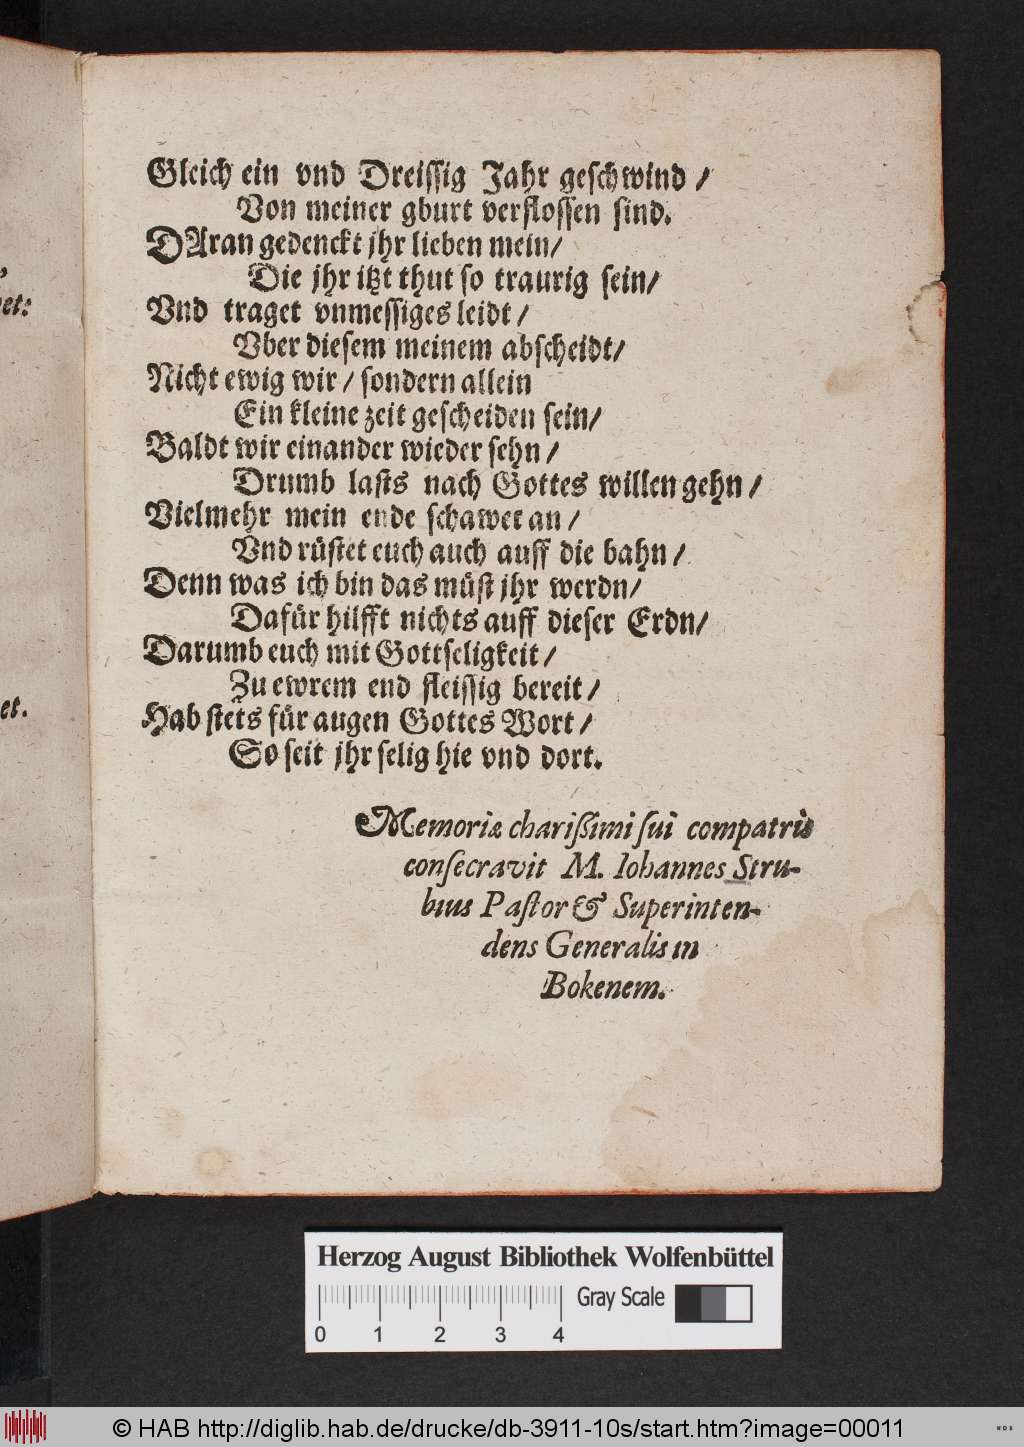 Gleich ein vnd Dreissig Jahr geschwind /
Von meiner gburt verflossen sind.
DAran gedenckt jhr lieben mein/
Die jhr itzt thut so traurig sein/
Vnd traget vnmessiges leidt /
Vber diesem meinem abscheidt/
Nicht ewig wir / sondern allein
Ein kleine zeit gescheiden sein/
Baldt wir einander wieder sehn /
Drumb lasts nach Gottes willen gehn /
Vielmehr mein ende schawet an /
Vnd rüstet euch auch auff die bahn /
Denn was ich bin das müst jhr werdn/
Dafür hilfft nichts auff dieser Erdn/
Darumb euch mit Gottseligkeit /
Zu ewrem end fleissig bereit /
Hab stets für augen Gottes Wort /
So seit jhr selig hie vnd dort.
Memoriæ charißimi sui compatris
consecravit M. Iohannes Stru-
bius Pastor & Superinten-
dens Generalis in
Bokenem.
et.
Herzog August Bibliothek Wolfenbüttel
0 1 2 3 4
Gray Scale
© HAB http://diglib.hab.de/drucke/db-3911-10s/start.htm?image=00011